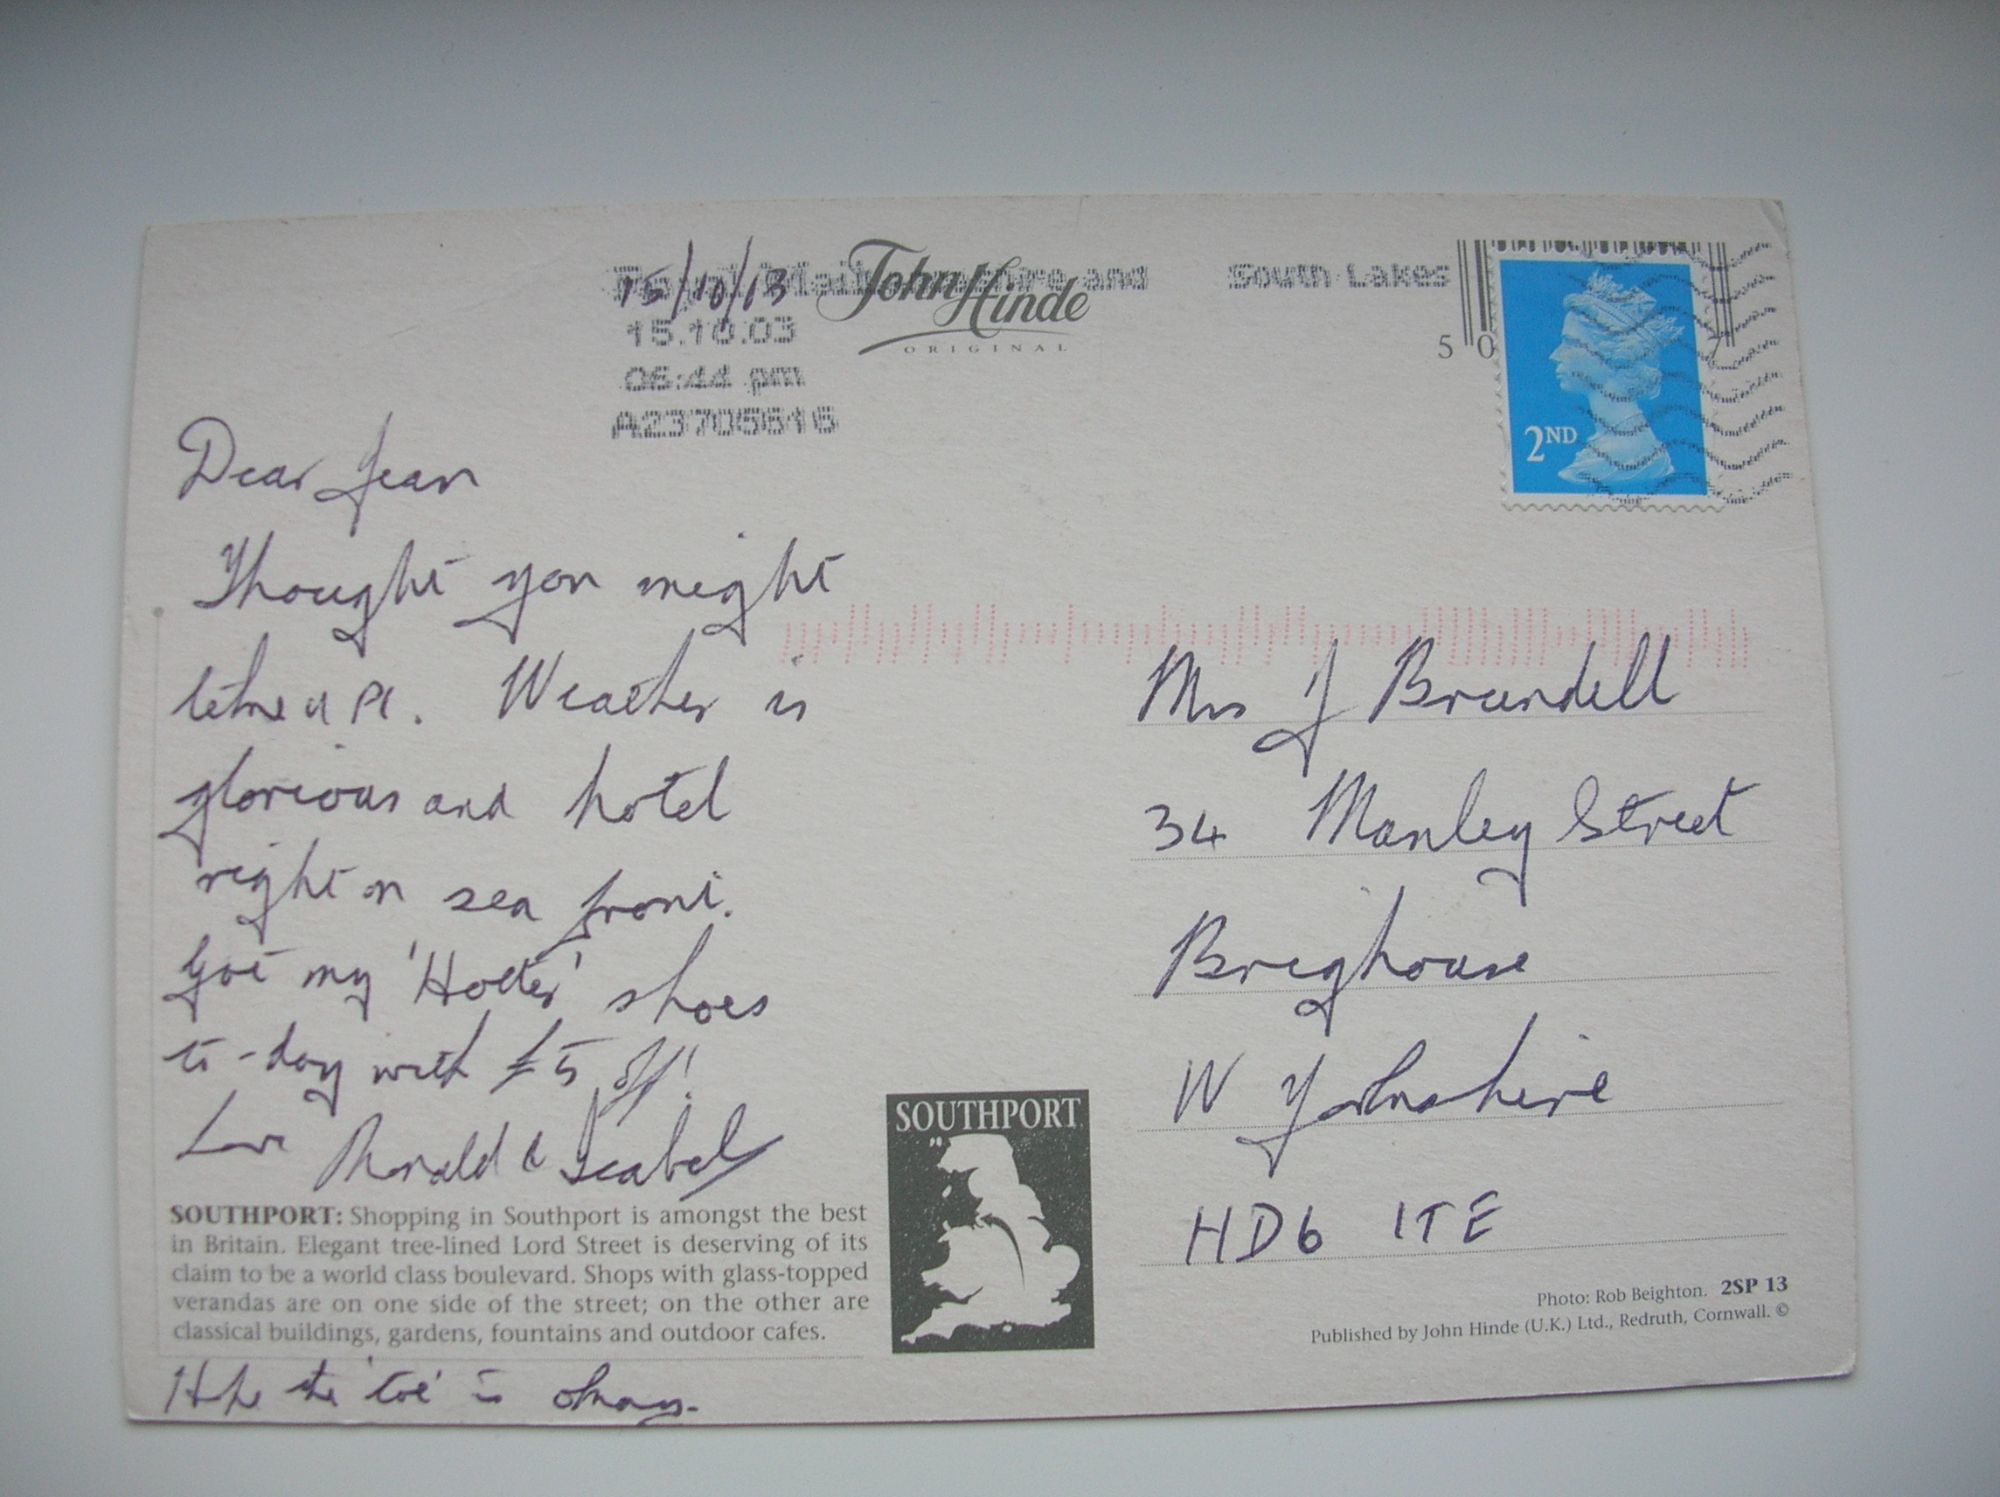 15/10/13
John Hinde
ORIGINAL
and South Lakes
15.10.03
06:44 pm
A23705616
5 0 7
2ND
Dear Jean
Thought you might
like a PC. Weather is
glorious and hotel
right on sea front.
Got my 'Hotter' shoes
to-day with £5 off!
Love Ronald & Isabel
SOUTHPORT: Shopping in Southport is amongst the best
in Britain. Elegant tree-lined Lord Street is deserving of its
claim to be a world class boulevard. Shops with glass-topped
verandas are on one side of the street; on the other are
classical buildings, gardens, fountains and outdoor cafes.
Hope the 'toe' is okay.
SOUTHPORT
Mrs J Brundell
34 Manley Street
Brighouse
W Yorkshire
HD6 1TE
Photo: Rob Beighton. 2SP 13
Published by John Hinde (U.K.) Ltd., Redruth, Cornwall. ©